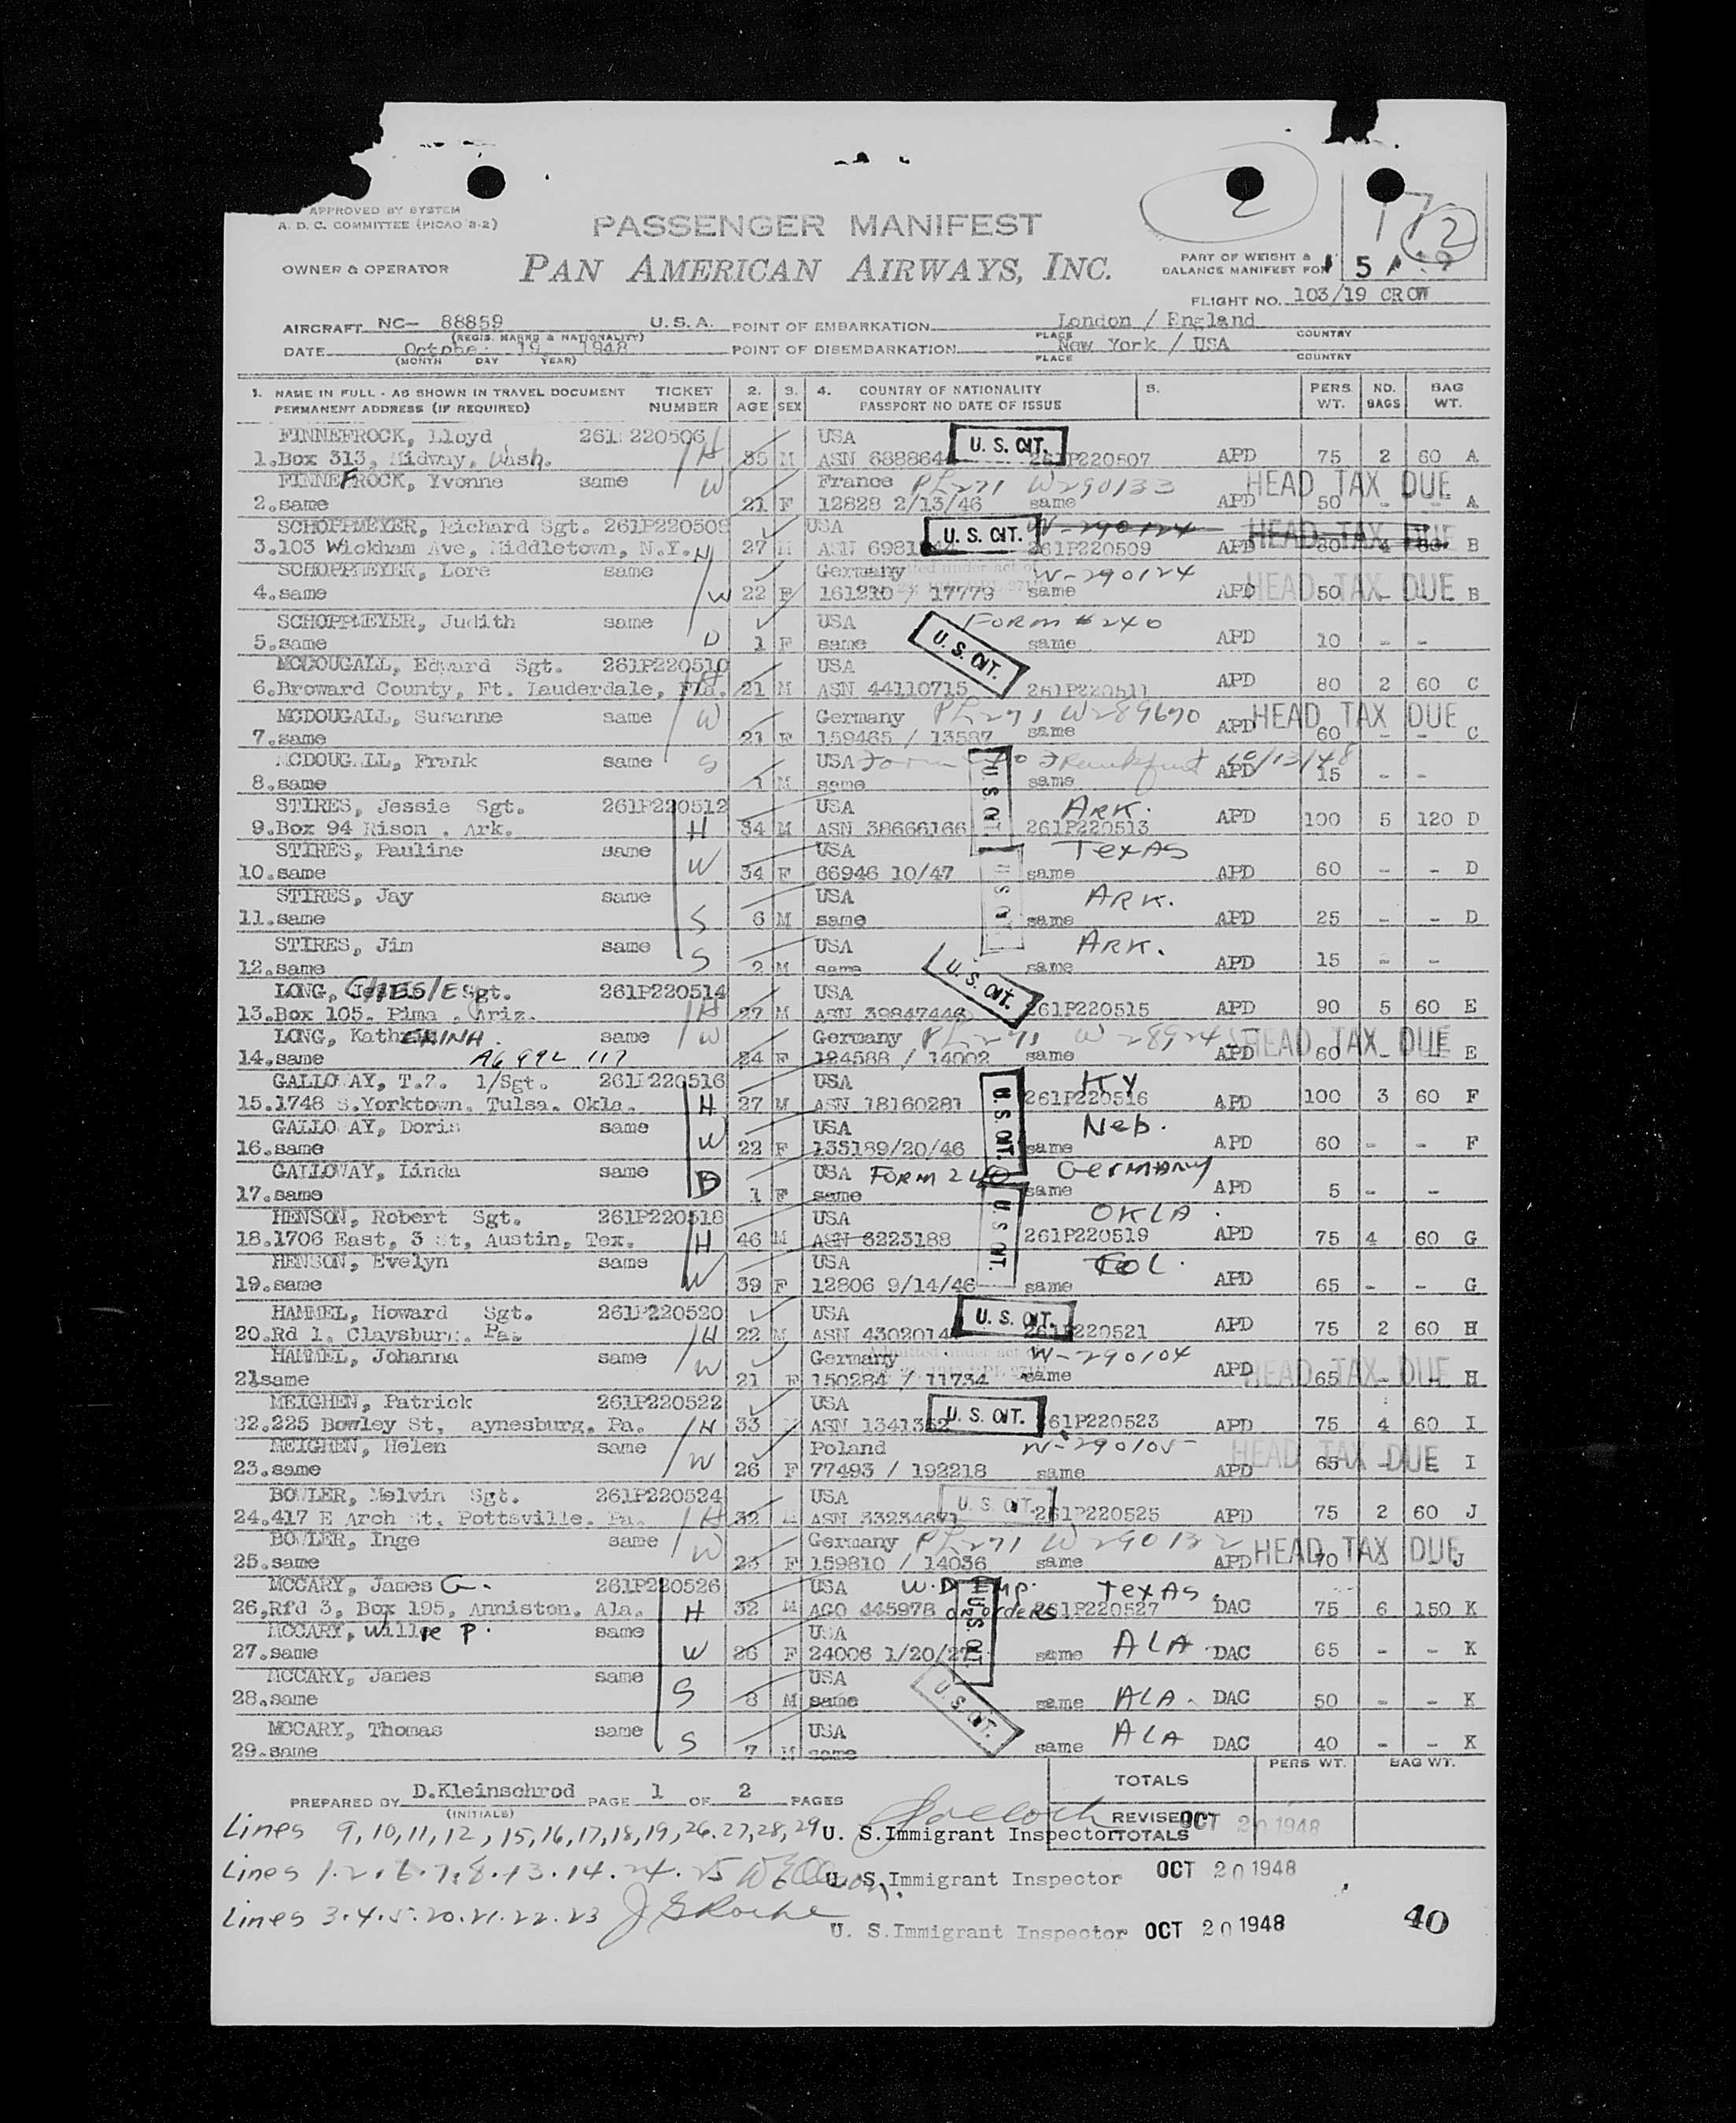 APPROVED BY SYSTEM
A. D. C. COMMITTEE (PICAO 8-2)
2
17 2
PASSENGER MANIFEST
OWNER & OPERATOR PAN AMERICAN AIRWAYS, INC.
PART OF WEIGHT &
BALANCE MANIFEST FOR
FLIGHT NO. 103/19 CROW
AIRCRAFT NC- 88859 U.S.A. POINT OF EMBARKATION London / England
(REGIS. MARKS & NATIONALITY) PLACE COUNTRY
DATE October 19 1948 POINT OF DISEMBARKATION New York / USA
(MONTH DAY YEAR) PLACE COUNTRY
1. NAME IN FULL - AS SHOWN IN TRAVEL DOCUMENT TICKET 2. 3. 4. COUNTRY OF NATIONALITY 5. PERS. NO. BAG
PERMANENT ADDRESS (IF REQUIRED) NUMBER AGE SEX PASSPORT NO DATE OF ISSUE WT. BAGS WT.
FINNEFROCK, Lloyd 261P220506 USA U. S. CIT.
1.Box 313, Midway, Wash. H 35 M ASN 688864 261P220507 APD 75 2 60 A
FINNEFROCK, Yvonne same W France PL271 W290133 HEAD TAX DUE
2.same 21 F 12828 2/13/46 same APD 50 - - A
SCHOPPMEYER, Richard Sgt. 261P220508 USA U. S. CIT. W-290124 HEAD TAX DUE
3.103 Wickham Ave, Middletown, N.Y. H 27 M ASN 6981 261P220509 APD 80 4 60 B
SCHOPPMEYER, Lore same Germany W-290124 HEAD TAX DUE
4.same W 22 F 161210 / 17779 same APD 50 - - B
SCHOPPMEYER, Judith same USA FORM # 240
5.same D 1 F same same APD 10 - -
MCDOUGALL, Edward Sgt. 261P220510 USA U. S. CIT.
6.Broward County, Ft. Lauderdale, Fla. H 21 M ASN 44110715 261P220511 APD 80 2 60 C
MCDOUGALL, Susanne same W Germany PL271 W289690 HEAD TAX DUE
7.same 21 F 159465 / 13587 same APD 60 - - C
MCDOUGALL, Frank same S USA Form 240 Frankfurt 10/13/48
8.same 1 M same same APD 15 - -
STIRES, Jessie Sgt. 261P220512 USA U. S. CIT. ARK.
9.Box 94 Rison , Ark. H 34 M ASN 38666166 261P220513 APD 100 5 120 D
STIRES, Pauline same USA TEXAS
10.same W 34 F 66946 10/47 same APD 60 - - D
STIRES, Jay same USA U. S. CIT. ARK.
11.same S 6 M same same APD 25 - - D
STIRES, Jim same USA ARK.
12.same S 2 M same same APD 15 - -
LONG, Sgt. 261P220514 USA U. S. CIT.
13.Box 105, Pima , Ariz. H 27 M ASN 39847446 261P220515 APD 90 5 60 E
LONG, KathERINA same W Germany PL271 HEAD TAX DUE
14.same A6 992 117 24 F 124588 / 14002 same APD 60 - - E
GALLOWAY, T.?. 1/Sgt. 261P220516 USA KY
15.1748 S.Yorktown, Tulsa, Okla. H 27 M ASN 18160281 U. S. CIT. 261P220516 APD 100 3 60 F
GALLOWAY, Doris same USA Neb.
16.same W 22 F 135189/20/46 same APD 60 - - F
GALLOWAY, Linda same USA FORM 240 GERMANY
17.same D 1 F same same APD 5 - -
HENSON, Robert Sgt. 261P220518 USA U. S. CIT. OKLA.
18.1706 East, 3 St, Austin, Tex. H 46 M ASN 6223188 261P220519 APD 75 4 60 G
HENSON, Evelyn same USA Col.
19.same W 39 F 12806 9/14/46 same APD 65 - - G
HAMMEL, Howard Sgt. 261P220520 USA U. S. CIT.
20.Rd 1, Claysburg, Pa. H 22 M ASN 4302014 261P220521 APD 75 2 60 H
HAMMEL, Johanna same Germany W-290104 HEAD TAX DUE
21same W 21 F 150284 / 11734 same APD 65 - - H
MEIGHEN, Patrick 261P220522 USA U. S. CIT.
22.225 Bowley St, aynesburg, Pa. H 33 M ASN 1341352 261P220523 APD 75 4 60 I
MEIGHEN, Helen same Poland W-290105 HEAD TAX DUE
23.same W 26 F 77493 / 192218 same APD 65 - - I
BOWLER, Melvin Sgt. 261P220524 USA U. S. CIT.
24.417 E Arch St. Pottsville. Pa. H 32 M ASN 261P220525 APD 75 2 60 J
BOWLER, Inge same W Germany PL271 W290132 HEAD TAX DUE
25.same 23 F 159810 / 14036 same APD 70 J
MCCARY, James G. 261P220526 USA W.D Emp. TEXAS.
26,Rfd 3, Box 195, Anniston, Ala. H 32 M AGO 445978 on orders U. S. CIT. 261P220527 DAC 75 6 150 K
MCCARY, Willie P. same USA
27.same W 26 F 24006 1/20/27 same ALA. DAC 65 - - K
MCCARY, James same USA
28.same S 8 M same U. S. CIT. same ALA. DAC 50 - - K
MCCARY, Thomas same USA
29.same S 7 M same same ALA DAC 40 - - K
PERS WT. BAG WT.
TOTALS
PREPARED BY D.Kleinschrod PAGE 1 OF 2 PAGES
(INITIALS)
Lines 9,10,11,12,15,16,17,18,19,26.27,28,29 U. S.Immigrant Inspector REVISED TOTALS OCT 20 1948
Lines 1.2.6.7.8.13.14.24.25 U. S.Immigrant Inspector OCT 20 1948
Lines 3.4.5.20.21.22.23 J S Roche
U. S.Immigrant Inspector OCT 20 1948
40